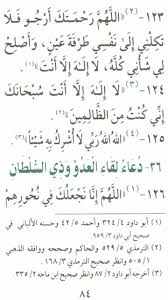 ١٢٣ -(٢) ((اللَّهُمَّ رَحْمَتَكَ أَرْجُو فَلَا
تَكِلْنِي إِلَى نَفْسِي طَرْفَةَ عَيْنٍ، وَأَصْلِحْ
لِي شَأْنِي كُلَّهُ، لَا إِلَهَ إِلَّا أَنْتَ))(١).
١٢٤ -(٣) ((لَا إِلَهَ إِلَّا أَنْتَ سُبْحَانَكَ
إِنِّي كُنْتُ مِنَ الظَّالِمِينَ))(٢).
١٢٥ -(٤) ((اللهُ اللهُ رَبِّي لَا أُشْرِكُ بِهِ شَيْئاً))(٣).
٣٦- دُعَاءُ لِقَاءِ الْعَدُوِّ وَذِي السُّلْطَانِ
١٢٦ -(١) ((اللَّهُمَّ إِنَّا نَجْعَلُكَ فِي نُحُورِهِمْ
(١) أبو داود ٤/ ٣٢٤ وأحمد ٥/ ٤٢ وحسنه الألباني في
صحيح أبي داود ٣/ ٩٥٩.
(٢) الترمذي ٥/ ٥٢٩ والحاكم وصححه ووافقه الذهبي
١/ ٥٠٥ وانظر صحيح الترمذي ٣/ ١٦٨.
(٣) أبو داود ٢/ ٨٧ وانظر صحيح ابن ماجه ٢/ ٣٣٥.
٨٤